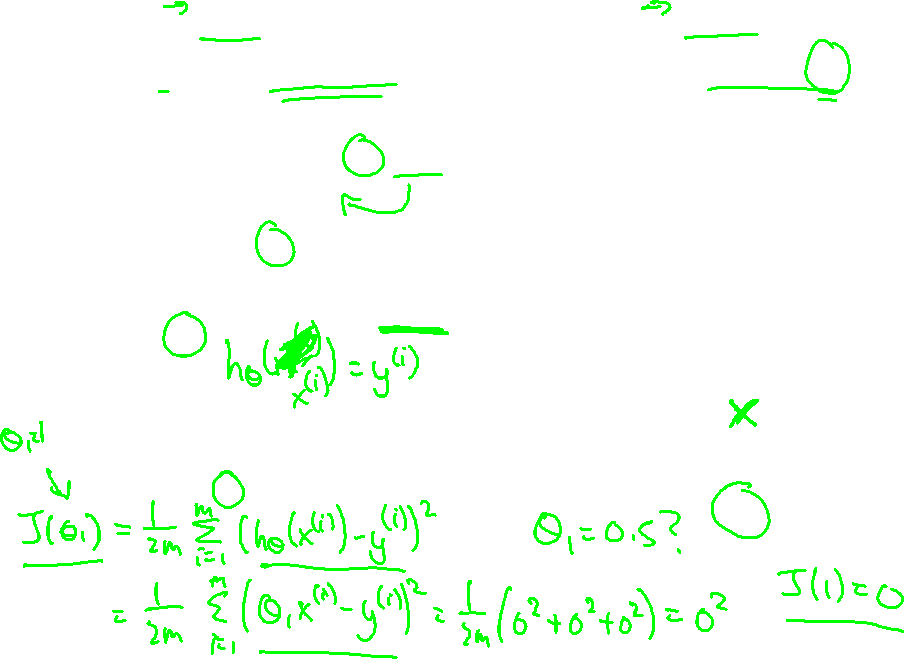 h_θ(x^(i)) = y^(i)
θ₁=1
J(θ₁) = 1/2m Σ_{i=1}^{m} (h_θ(x^(i)) - y^(i))²
θ₁ = 0.5?
= 1/2m Σ_{i=1}^{m} (θ₁x^(i) - y^(i))² = 1/2m (0² + 0² + 0²) = 0²
J(1) = 0